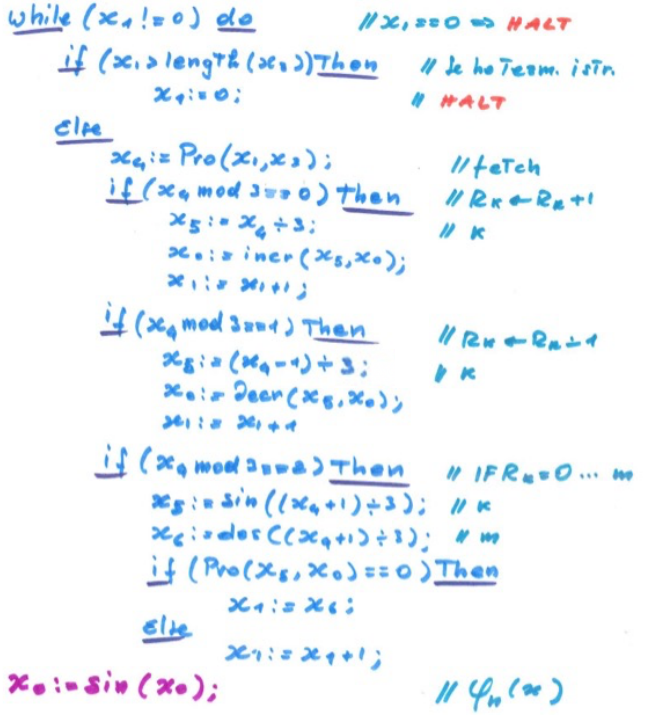 while (x₁ != 0) do // x₁ == 0 ⇒ HALT
if (x₁ > length(x₃)) Then // Se ho Term. istr.
x₁ := 0; // HALT
else
x₄ := Pro(x₁, x₃); // fetch
if (x₄ mod 3 == 0) Then // Rₖ ← Rₖ + 1
x₅ := x₄ ÷ 3; // k
x₀ := incr(x₅, x₀);
x₁ := x₁ + 1;
if (x₄ mod 3 == 1) Then // Rₖ ← Rₖ ∸ 1
x₅ := (x₄ - 1) ÷ 3; // k
x₀ := decr(x₅, x₀);
x₁ := x₁ + 1
if (x₄ mod 3 == 2) Then // IF Rₖ = 0 ... m
x₅ := sin((x₄ + 1) ÷ 3); // k
x₆ := des((x₄ + 1) ÷ 3); // m
if (Pro(x₅, x₀) == 0) Then
x₁ := x₆;
else
x₁ := x₁ + 1;
x₀ := sin(x₀); // φₙ(x)